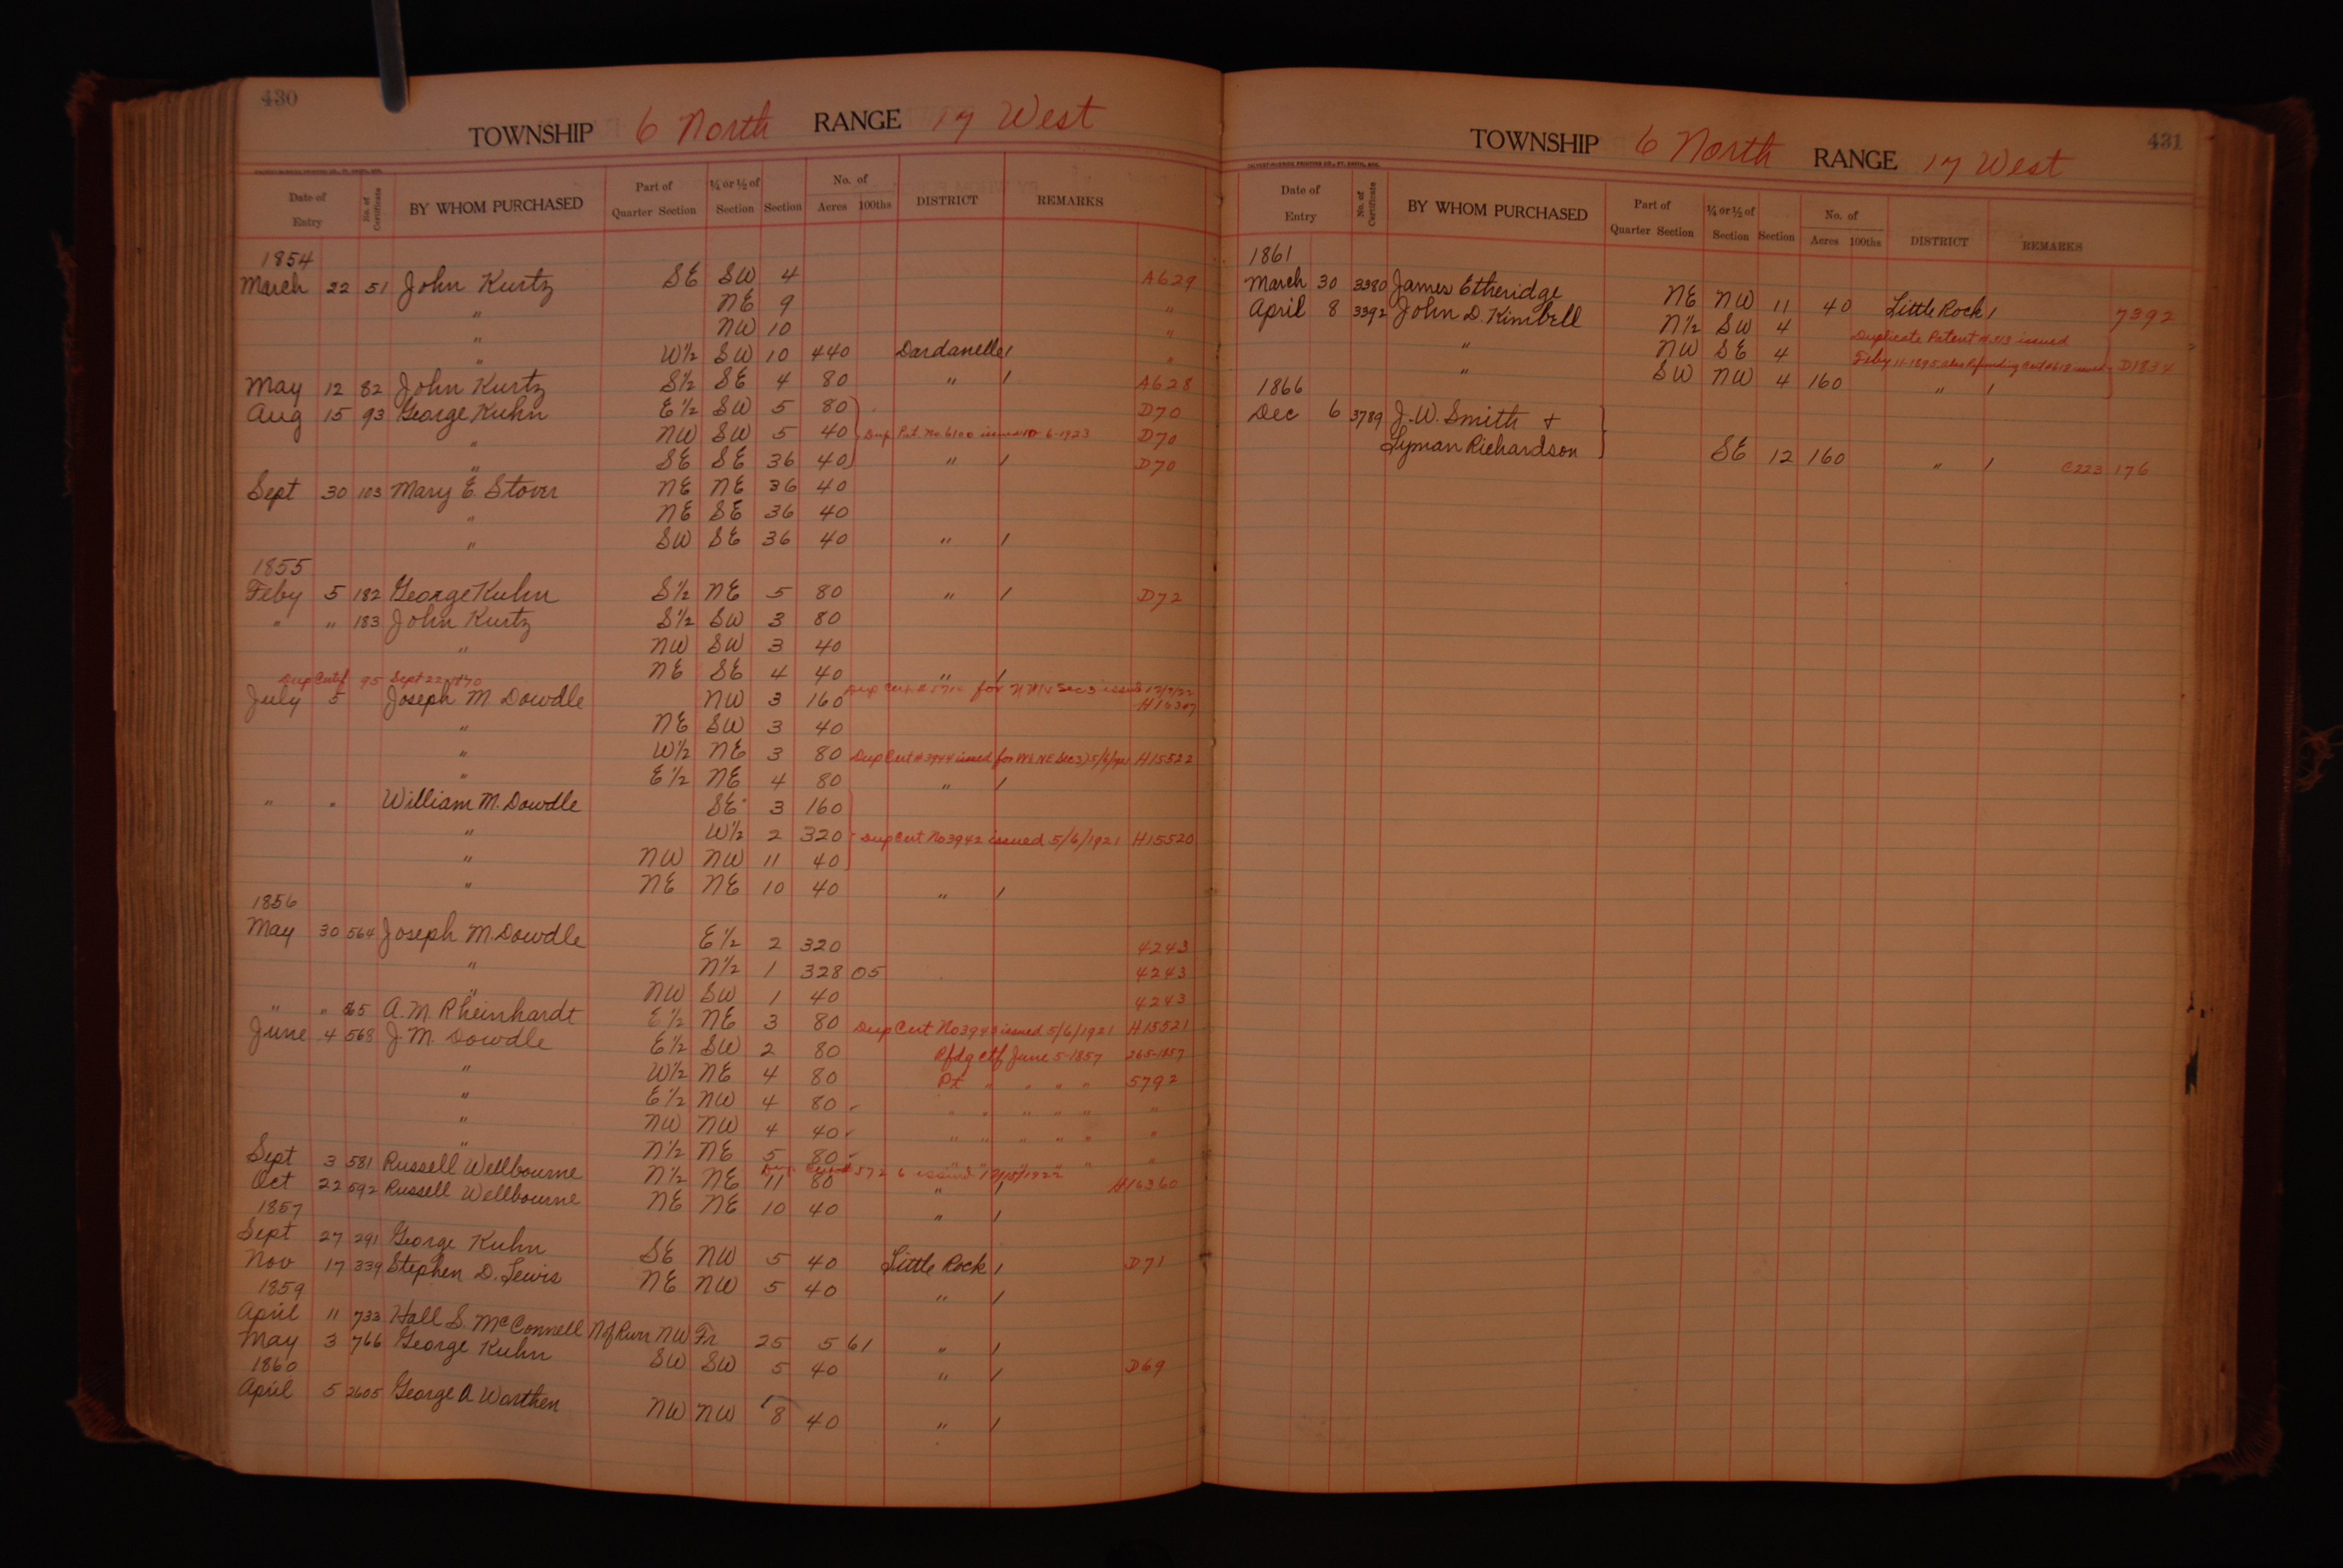 430
TOWNSHIP 6 North RANGE 17 West
Date of Entry No. of Certificate BY WHOM PURCHASED Part of Quarter Section ¼ or ½ of Section Section No. of Acres 100ths DISTRICT REMARKS
1854
March 22 51 John Kurtz SE SW 4 A629
" NE 9 "
" NW 10 "
" W½ SW 10 440 Dardanelle / "
May 12 82 John Kurtz S½ SE 4 80 " / A628
Aug 15 93 George Kuhn E½ SW 5 80 D70
" NW SW 5 40 Dup Pat. No. 6100 issued 10-6-1923 D70
" SE SE 36 40 " / D70
Sept 30 103 Mary E. Stover NE NE 36 40
" NE SE 36 40
" SW SE 36 40 " /
1855
Feby 5 182 George Kuhn S½ NE 5 80 " / D72
" " 183 John Kurtz S½ SW 3 80
" NW SW 3 40
NE SE 4 40 " /
Dup Certf 95 Sept 22
July 5 Joseph M. Dowdle NW 3 160 Dup Cert # for NW¼ Sec 3 issued H16307
" NE SW 3 40
" W½ NE 3 80 Dup Cert # 3944 issued for W½ NE Sec 3) 5/6/1921 H15522
" E½ NE 4 80 " /
" " William M. Dowdle SE 3 160
" W½ 2 320 Dup Cert No 3942 issued 5/6/1921 H15520
" NW NW 11 40
" NE NE 10 40 " /
1856
May 30 564 Joseph M. Dowdle E½ 2 320 4243
" N½ 1 328 05 4243
" NW SW 1 40 4243
" " 565 A. M. Rheinhardt E½ NE 3 80 Dup Cert No 3943 issued 5/6/1921 H15521
June 4 568 J. M. Dowdle E½ SW 2 80 Rfdg ctf June 5-1857 265-1857
" W½ NE 4 80 Pt " " " " 5792
" E½ NW 4 80 " " " " " "
" NW NW 4 40 " " " " " "
" N½ NE 5 80 " " " " " "
Sept 3 581 Russell Wellbourne N½ NE 11 80 Dup. Cert # 5726 issued 12/15/1922 " / H16360
Oct 22 592 Russell Wellbourne NE NE 10 40 " /
1857
Sept 27 291 George Kuhn SE NW 5 40 Little Rock / D71
Nov 17 339 Stephen D. Lewis NE NW 5 40 " /
1859
April 11 733 Hall S. McConnell N of Rivr NW Fr 25 5 61 " /
May 3 766 George Kuhn SW SW 5 40 " / D69
1860
April 5 2605 George A Worthen NW NW 8 40 " /
431
TOWNSHIP 6 North RANGE 17 West
Date of Entry No. of Certificate BY WHOM PURCHASED Part of Quarter Section ¼ or ½ of Section Section No. of Acres 100ths DISTRICT REMARKS
1861
March 30 3380 James Etheridge NE NW 11 40 Little Rock / 7392
April 8 3392 John D. Kimbell N½ SW 4 Duplicate Patent issued
" NW SE 4 Feby 11-1895 also Refunding Cert #618 issued D1834
" SW NW 4 160 " /
1866
Dec 6 3789 J. W. Smith +
Lyman Richardson SE 12 160 " / C223 176